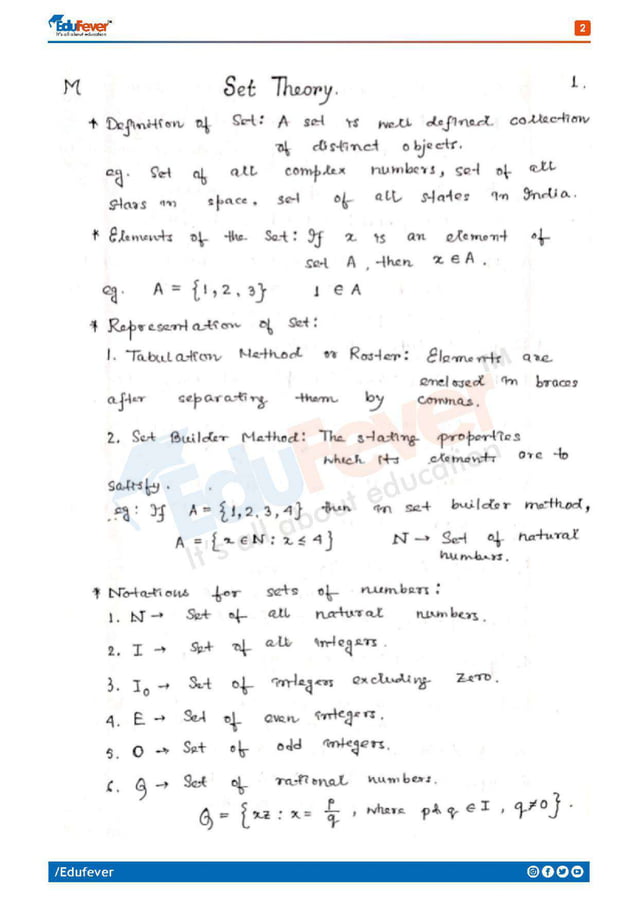 EduFever™
It's all about education
2
M Set Theory. 1.
* Definition of Set: A set is well defined collection
of distinct objects.
eg. Set of all complex numbers, set of all
stars in space. set of all states in India.
* Elements of the Set: If x is an element of
set A, then x ∈ A.
eg. A = {1, 2, 3} 1 ∈ A
* Representation of Set:
1. Tabulation Method or Roster: Elements are
enclosed in braces
after separating them by commas.
2. Set Builder Method: The stating properties
which its elements are to
satisfy.
eg: If A = {1, 2, 3, 4} then in set builder method,
A = {x ∈ N : x ≤ 4} N → Set of natural
numbers.
* Notations for sets of numbers:
1. N → Set of all natural numbers.
2. I → Set of all integers.
3. I₀ → Set of integers excluding zero.
4. E → Set of even integers.
5. O → Set of odd integers.
6. Q → Set of rational numbers.
Q = {xz : x = p/q, where p & q ∈ I, q ≠ 0}.
EduFever™
It's all about education
/Edufever